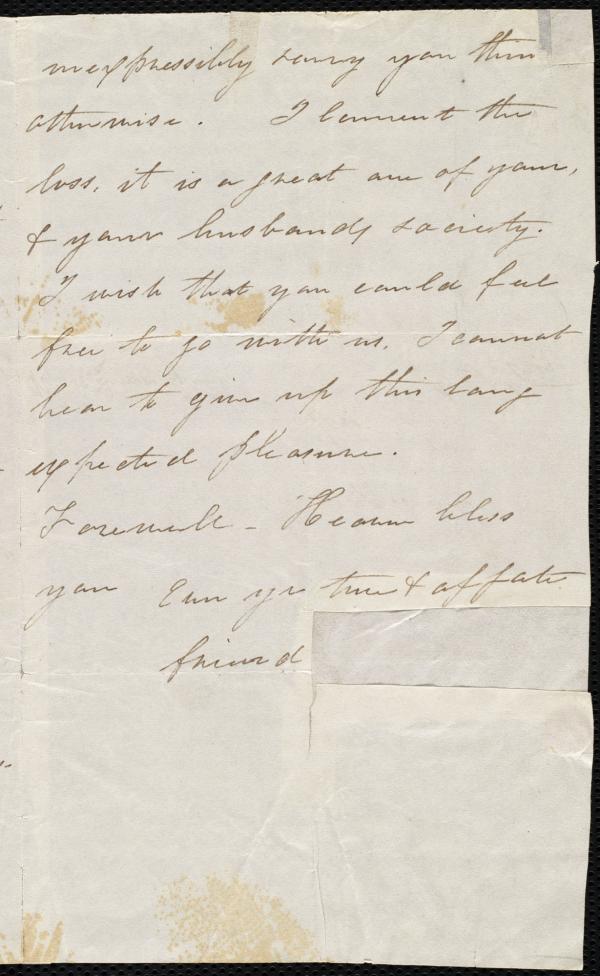 inexpressibly sorry you think
otherwise. I lament the
loss, it is a great one of your,
& your husbands society.
I wish that you could feel
free to go with us. I cannot
bear to give up this long
expected pleasure.
Farewell - Heaven bless
you Ever yr true & affate
friend